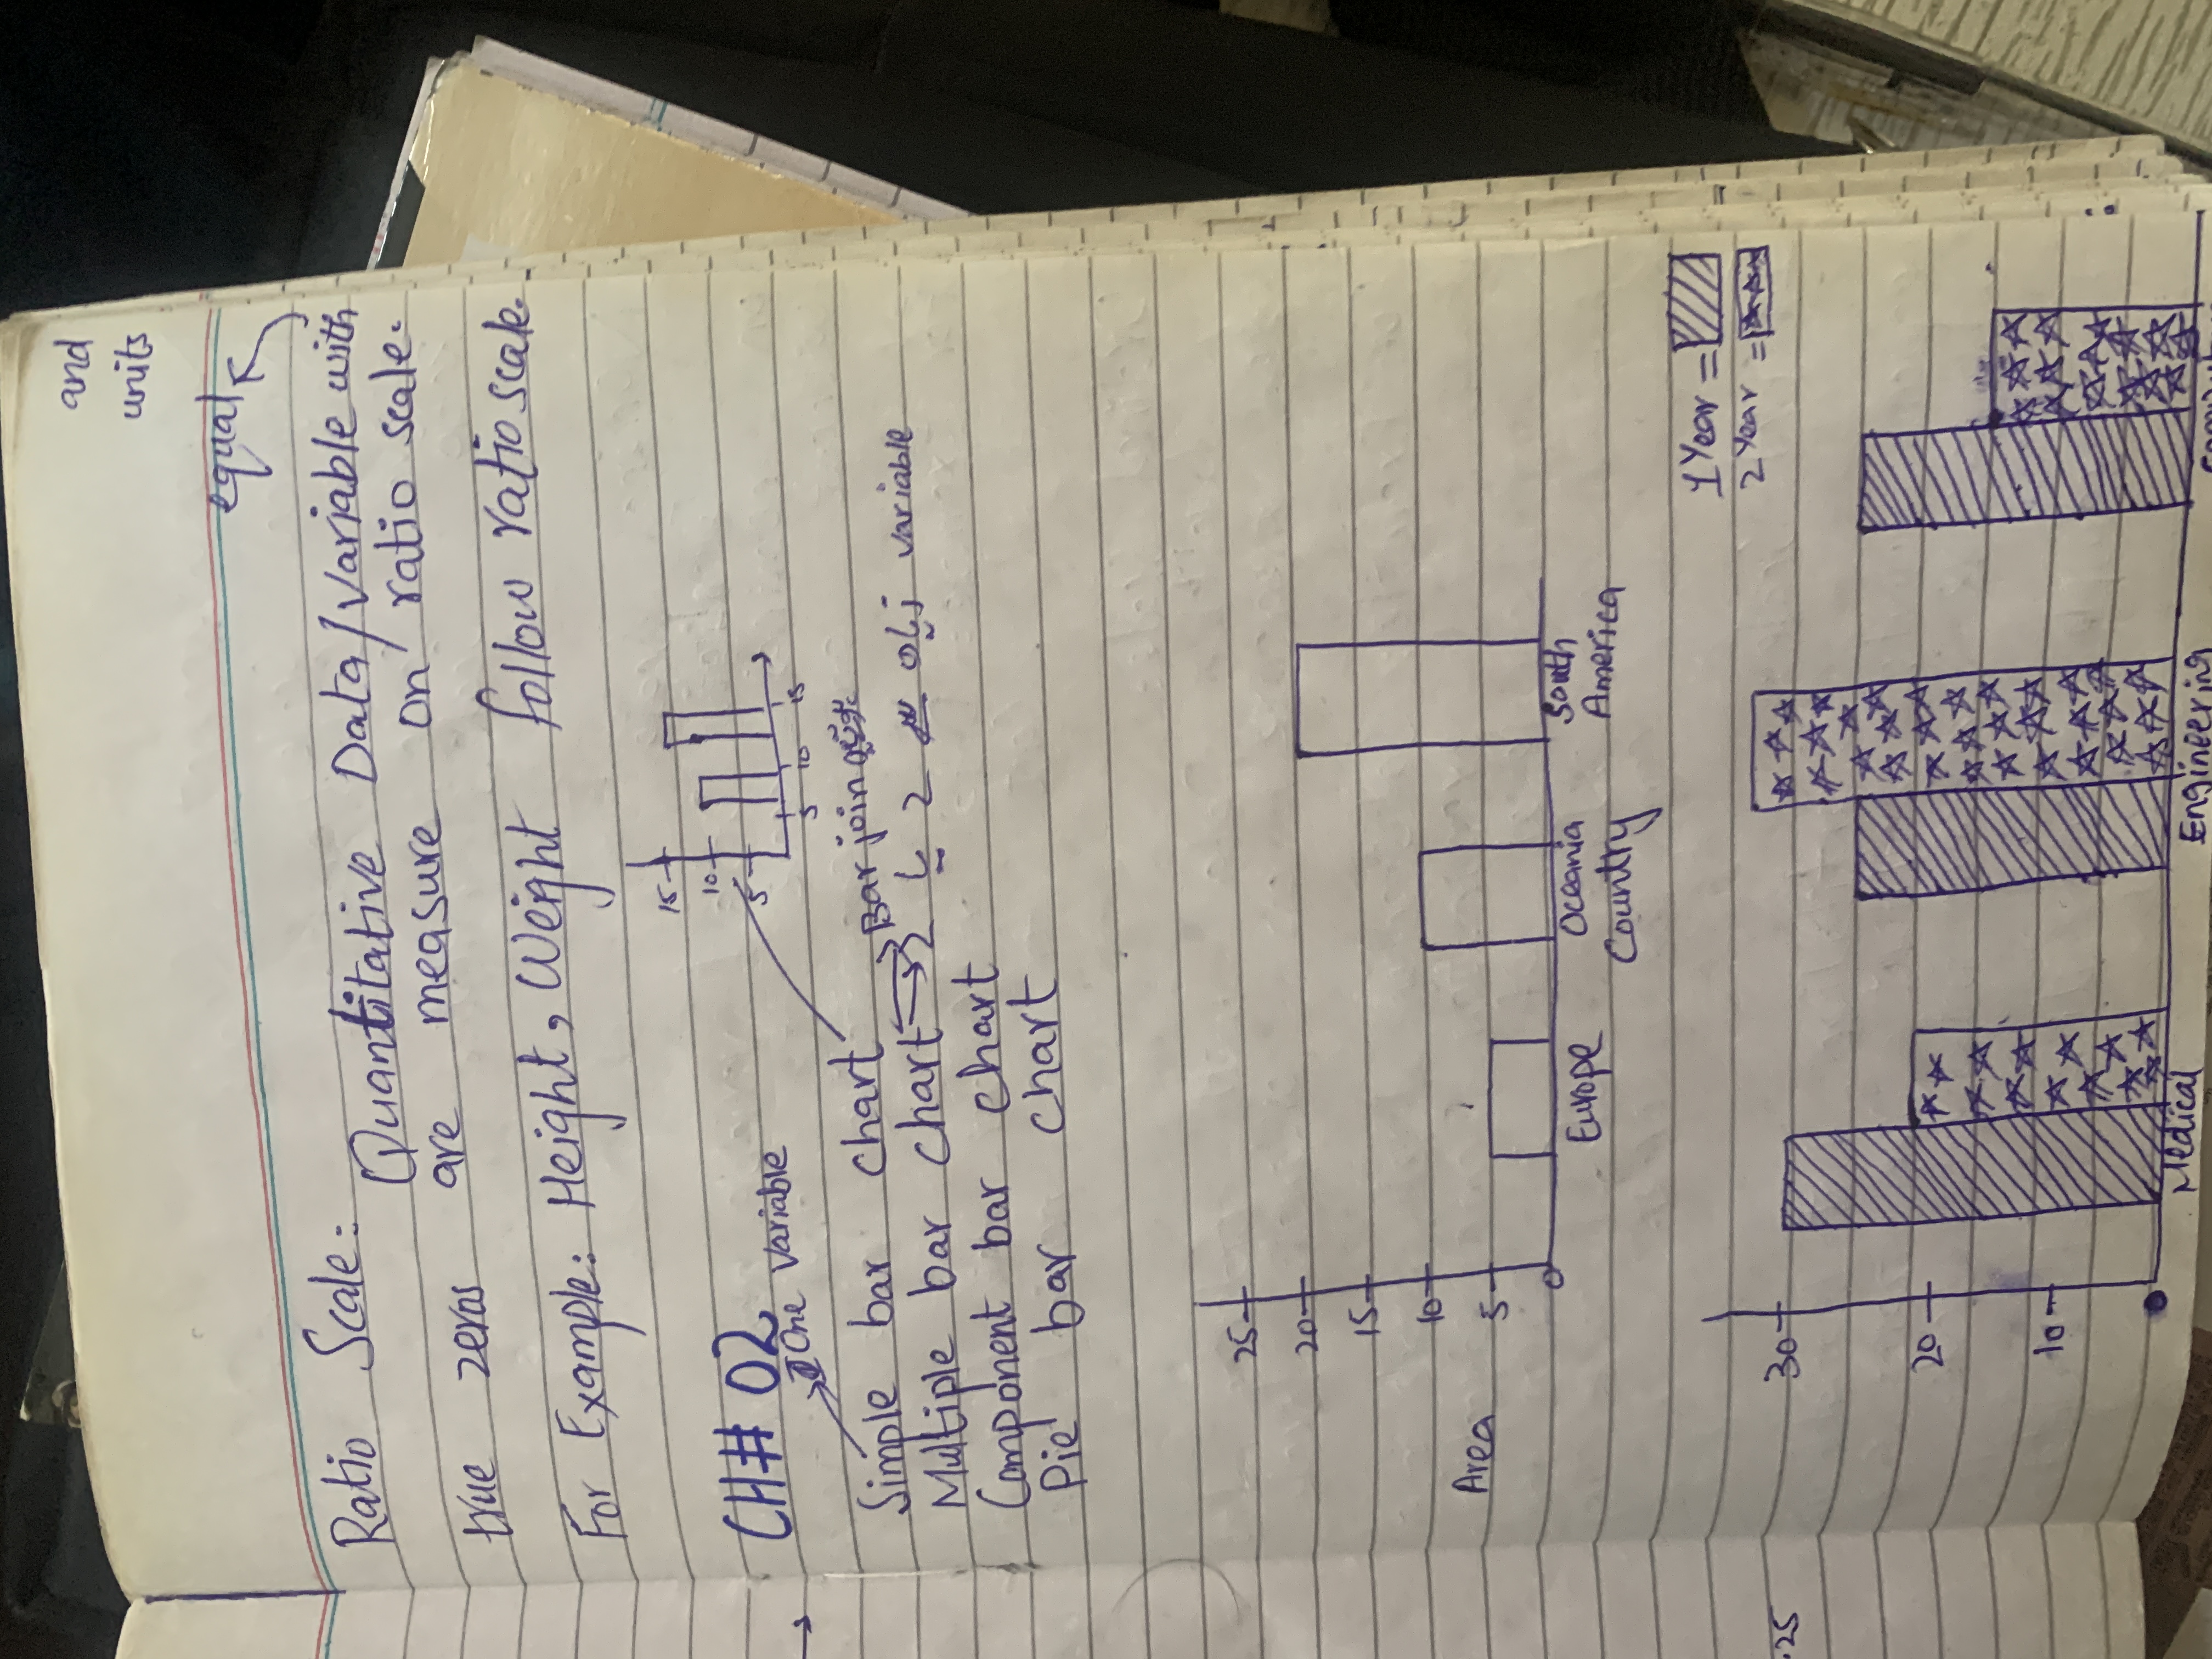 and
units
equal
Ratio Scale:
Quantitative Data/Variable with
true zeros are measure on ratio scale.
For Example: Height, Weight follow ratio scale.
15
10
5
5 10 15
CH# 02
One Variable
Simple bar chart
Bar join
Multiple bar chart 2 یا 2 زیادہ variable
Component bar chart
Pie bar chart
25
20
15
10
Area 5
0
Europe Oceania South
America
Country
1 Year =
2 Year =
.25
30
20
10
Medical Engineering